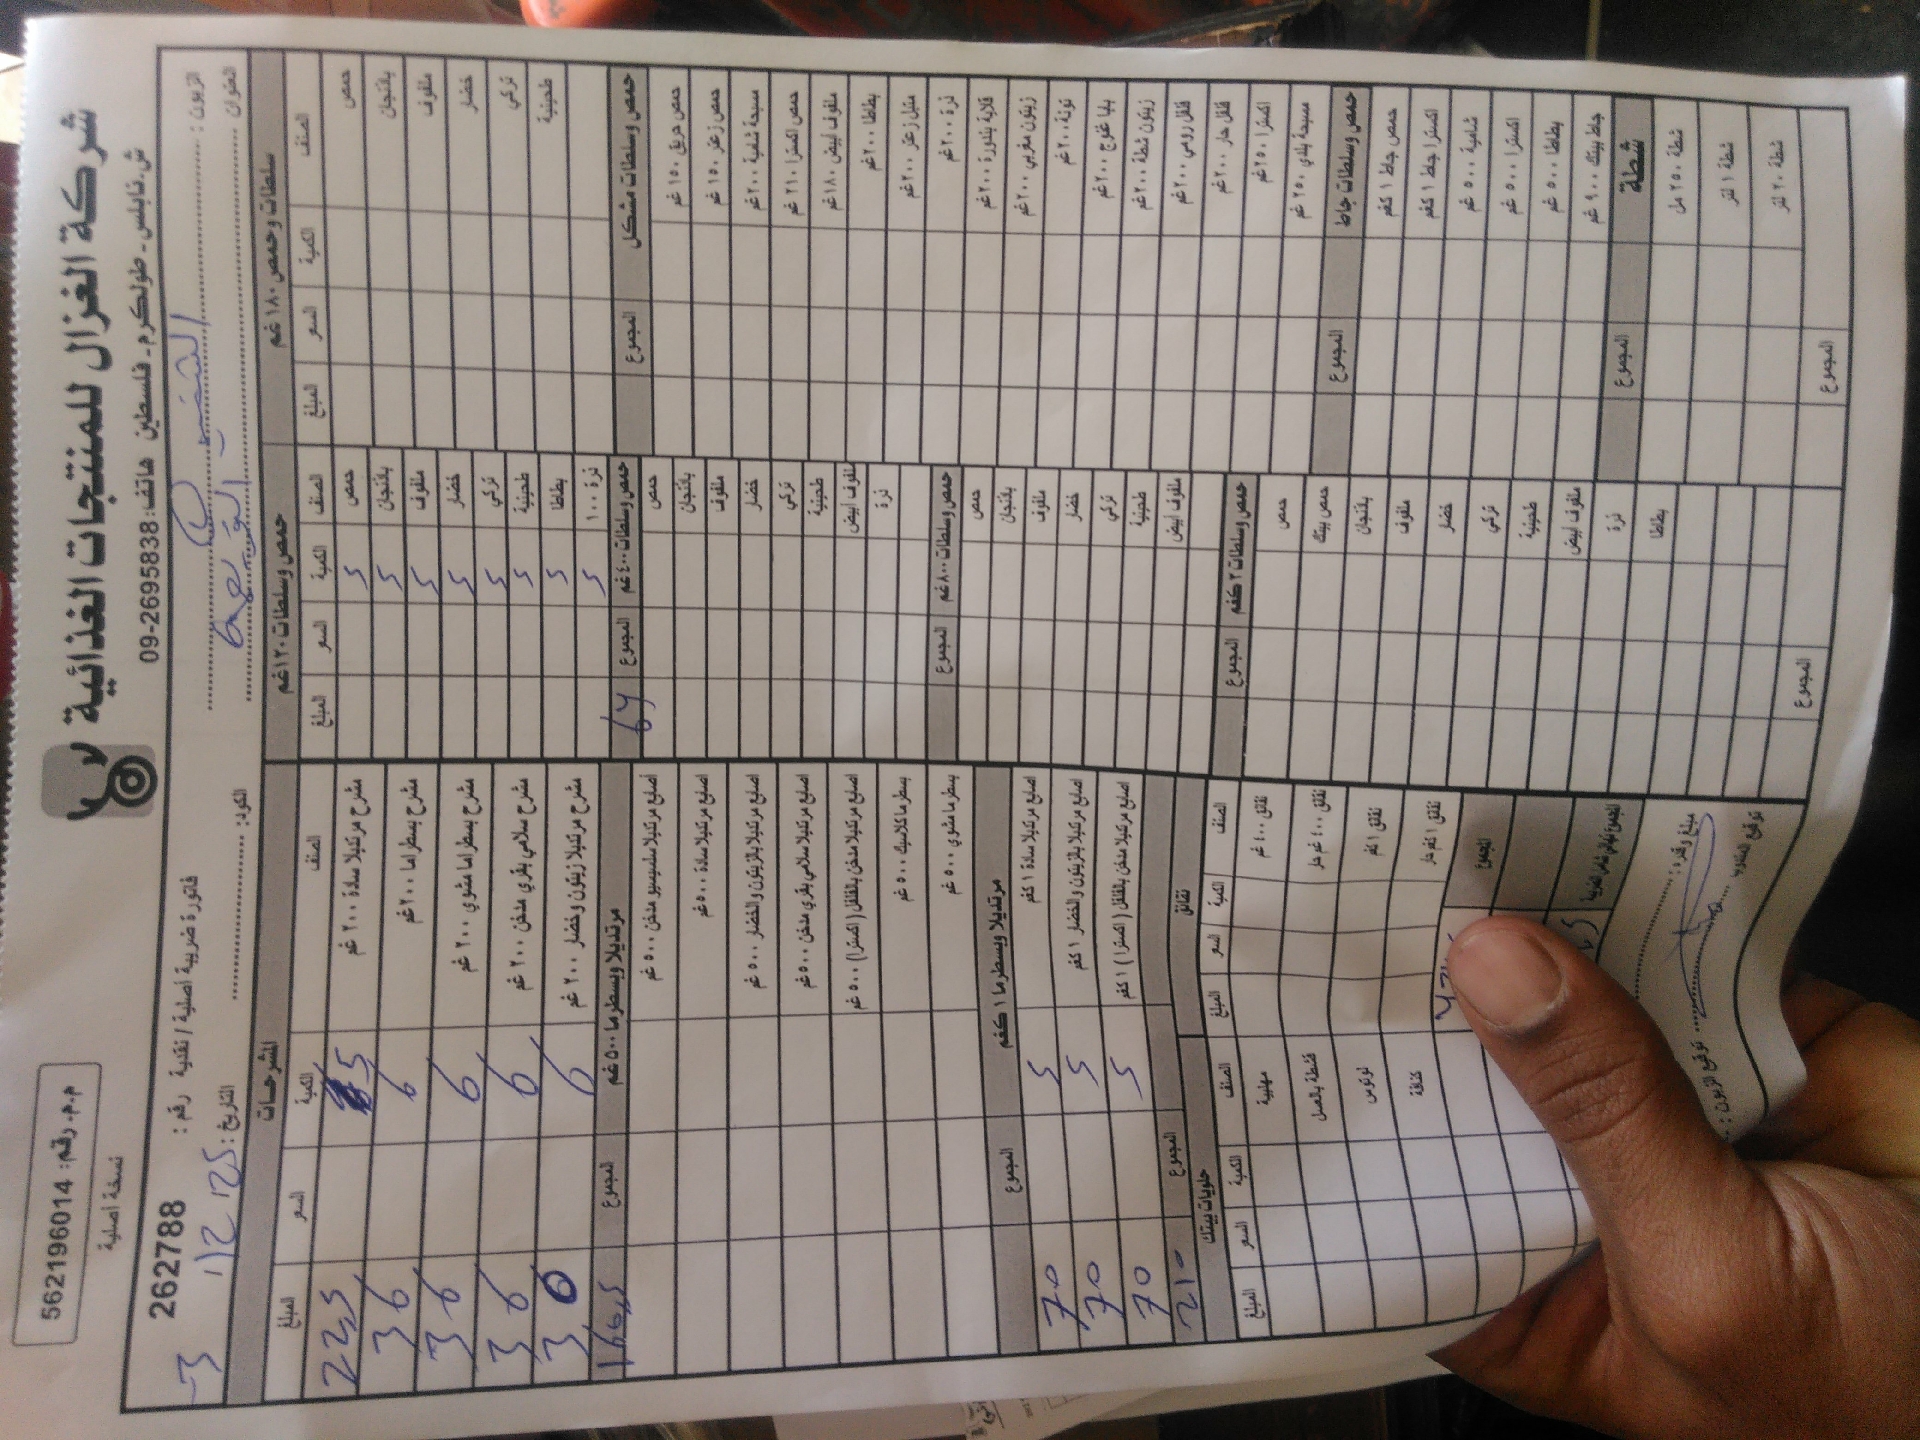 شركة الغزال للمنتجات الغذائية
ش.نابلس - طولكرم - فلسطين هاتف: 09-2695838
م.م. رقم: 562196014
نسخة أصلية
فاتورة ضريبية أصلية / نقدية رقم: 262788
الزبون:
العنوان
الكود:
التاريخ:
سلطات وحمص ١٨٠ غم
الصنف الكمية السعر المبلغ
حمص
باذنجان
ملفوف
خضار
تركي
طحينية
حمص وسلطات مشكل المجموع
حمص حريق ١٥٠ غم
حمص زعتر ١٥٠ غم
مسبحة شامية ٢٠٠ غم
حمص اكسترا ٢١٠ غم
ملفوف ابيض ١٨٠ غم
بطاطا ٢٠٠ غم
متبل زعتر ٢٠٠ غم
ذرة ٢٠٠ غم
قلاية بندورة ٢٠٠ غم
زيتون مغربي ٢٠٠ غم
تونة ٢٠٠ غم
بابا غنوج ٢٠٠ غم
زيتون شطة ٢٠٠ غم
فلفل رومي ٢٠٠ غم
فلفل حار ٢٠٠ غم
اكسترا ٢٥٠ غم
مسبحة بلدي ٢٥٠ غم
حمص وسلطات جاط المجموع
حمص جاط ١ كغم
اكسترا جاط ١ كغم
شامية ٥٠٠ غم
اكسترا ٥٠٠ غم
بطاطا ٥٠٠ غم
جاط بيتك ٩٠٠ غم
شطة المجموع
شطة ٢٥٠ مل
شطة ١ لتر
شطة ٢٠ لتر
المجموع
حمص وسلطات ١٢٠ غم
الصنف الكمية السعر المبلغ
حمص 5
باذنجان 5
ملفوف 5
خضار 5
تركي 5
طحينية 5
بطاطا 5
ذرة ١٠٠ 5
حمص وسلطات ٤٠٠ غم المجموع 64
حمص
باذنجان
ملفوف
خضار
تركي
طحينية
ملفوف ابيض
ذرة
حمص وسلطات ٨٠٠ غم المجموع
حمص
باذنجان
ملفوف
خضار
تركي
طحينية
ملفوف ابيض
حمص وسلطات ٣ كغم المجموع
حمص
حمص بيتك
باذنجان
ملفوف
خضار
تركي
طحينية
ملفوف ابيض
ذرة
بطاطا
المجموع
المشرحات
الصنف الكمية السعر المبلغ
مشرح مرتديلا سادة ٢٠٠ غم 5 22,5
مشرح بسطراما ٢٠٠ غم 6 36
مشرح بسطراما مشوي ٢٠٠ غم 6 36
مشرح سلامي بقري مدخن ٢٠٠ غم 6 36
مشرح مرتديلا زيتون وخضار ٢٠٠ غم 6 36
مرتديلا وبسطرما ٥٠٠ غم المجموع 166,5
اصابع مرتديلا سادة ٥٠٠ غم
اصابع مرتديلا بالزيتون والخضار ٥٠٠ غم
اصابع مرتديلا سلامي بقري مدخن ٥٠٠ غم
اصابع مرتديلا مدخن بالفلفل (اكسترا) ٥٠٠ غم
بسطرما كلاسيك ٥٠٠ غم
بسطرما مشوي ٥٠٠ غم
مرتديلا وبسطرما ١ كغم المجموع
اصابع مرتديلا سادة ١ كغم 5 70
اصابع مرتديلا بالزيتون والخضار ١ كغم 5 70
اصابع مرتديلا مدخن بالفلفل (اكسترا) ١ كغم 5 70
المجموع 210
نقانق
الصنف الكمية السعر المبلغ
نقانق ٤٠٠ غم
نقانق ٤٠٠ غم حار
نقانق ١ كغم
نقانق ١ كغم حار
المجموع
حلويات بيتك
الصنف الكمية السعر المبلغ
مهلبية
قشطة بالعسل
لوتوس
كنافة
مبلغ وقدره:
توقيع الزبون: